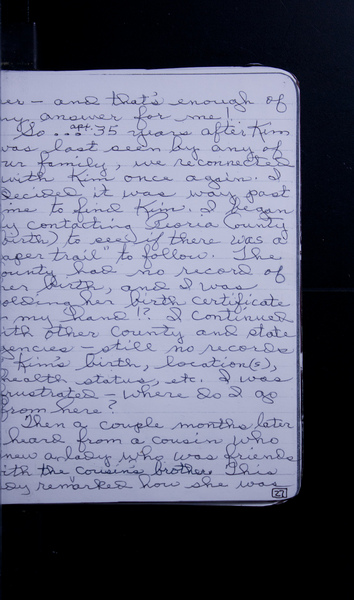 er – and that's enough of
ny answer for me!
So... apt. 35 years after Kim
was last seen by any of
ur family, we reconnected
with Kim once again. I
decided it was way past
me to find Kim. I began
y contacting Peoria County
birth) to see if there was a
aper trail" to follow. The
ounty had no record of
her birth, and I was
olding her birth certificate
n my hand!? I continued
ith other county and state
gencies – still no records
Kim's birth, location(s),
health status, etc. I was
rustrated – where do I go
from here?
Then a couple months later
heard from a cousin who
new a lady who was friends
ith the cousin's brother. This
ady remarked how she was
27